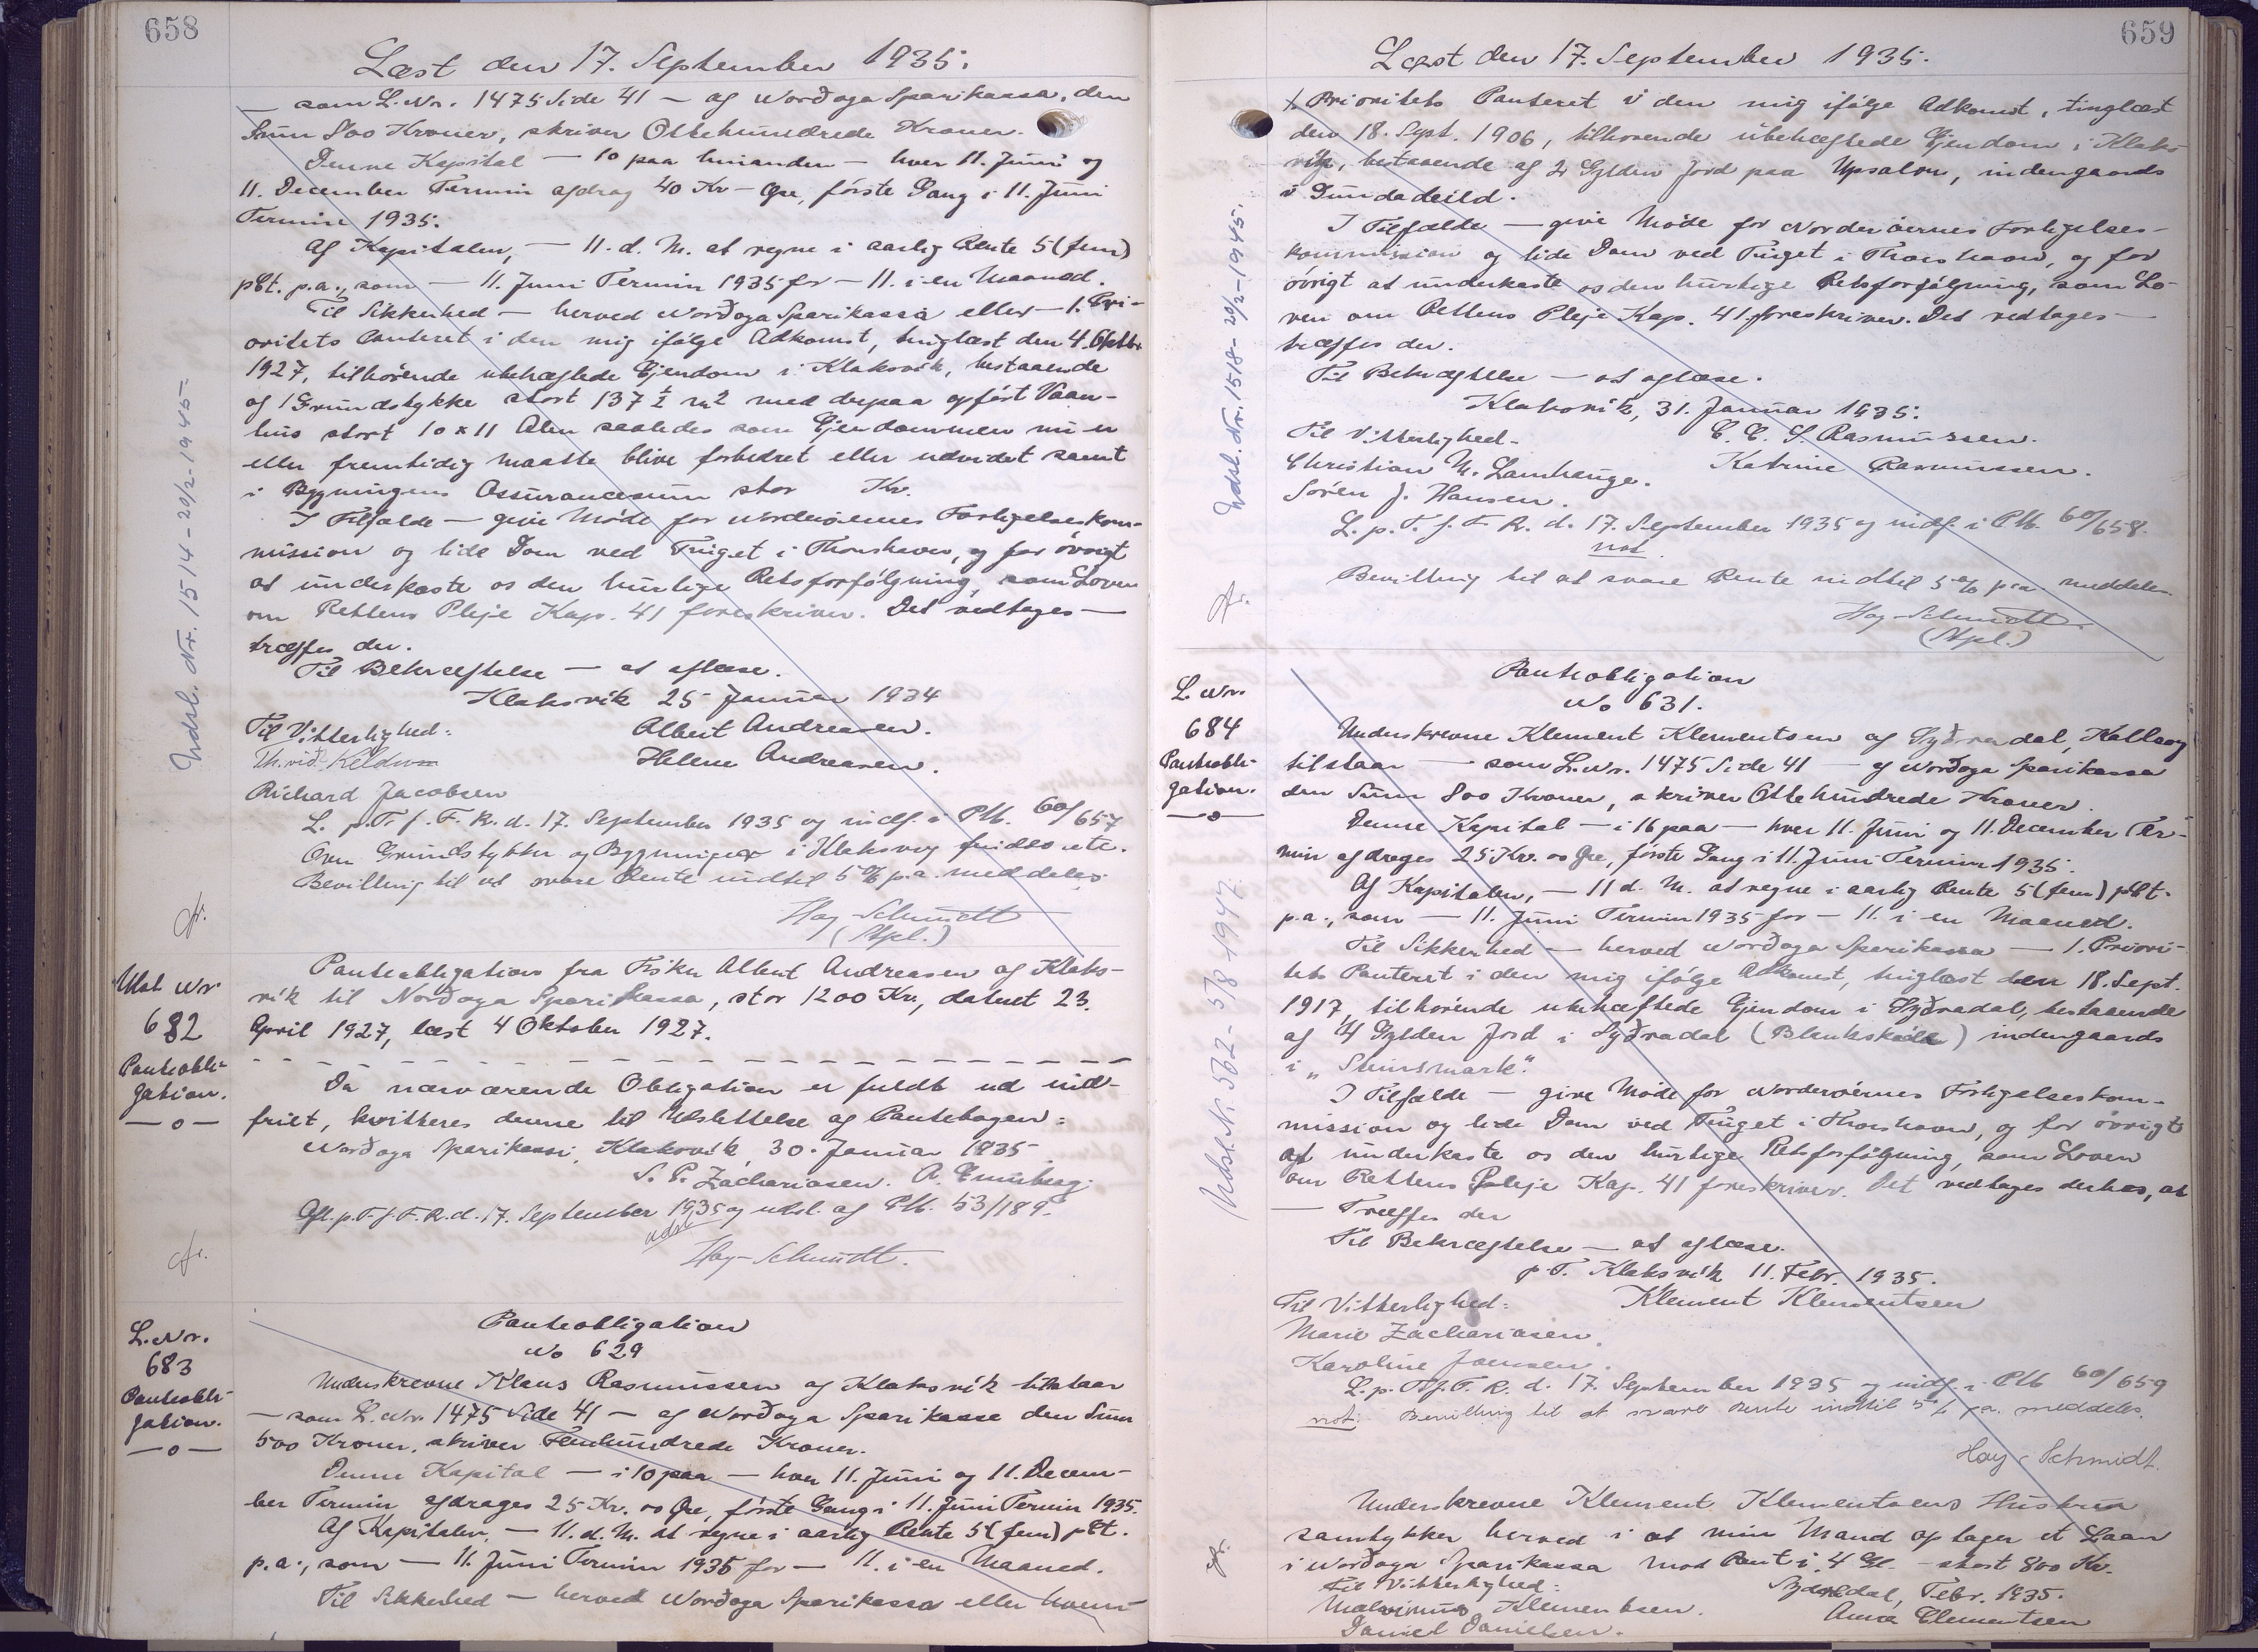 658
Læst den 17. September 1935.
— som L. Nr. 1475 Side 41 — af Norðoga Sparikassa, den
Sum 800 Kroner, skriver Ottehundrede Kroner.
Denne Kapital — 10 paa hinanden — hver 11. Juni og
11. December Termin afdrag 40 Kr — Øre, første Gang i 11. Juni
Termin 1935.
Af Kapitalen, — 11. d. M. at regne i aarlig Rente 5 (fem)
pCt. p.a., som — 11. Juni Termin 1935 for — 11. i en Maaned.
Til Sikkerhed — herved Norðoga Sparikassa eller — 1. Pri-
oritets Panteret i den mig ifølge Adkomst, tinglæst den 4. Oktbr
1927, tilhørende ubehæftede Ejendom i Klaksvik, bestaaende
af 1 Grundstykke stort 137 ½ m2 med derpaa opført Vaan-
hus stort 10 x 11 Alen saaledes som Ejendommen nu er
eller fremtidig maatte blive forbedret eller udvidet samt
i Bygningens Assurancesum stor Kr.
I Tilfælde — give Møde for Norderøernes Forligelseskom-
mission og lide Dom ved Tinget i Thorshavn, og for øvrigt
at underkaste os den hurtige Retsforfølgning, som Loven
om Rettens Pleje Kap. 41 foreskriver. Det vedtages —
træffes der.
Til Bekræftelse — at aflæse.
Klaksvik 25 Januar 1934
Til Vitterlighed: Albert Andreasen.
Th. við Keldum Helene Andreasen.
Richard Jacobsen
L. p. T. f. F. R. d. 17. September 1935 og indf. i Ptb. 60/657
Over Grundstykker og Bygninger i Klaksvig findes ete.
Bevilling til at svare Rente indtil 5 % p.a. meddeles.
Hay-Schmidt
(Stpl.)
Udsl. Nr. 1514 - 20/2-1945
Udsl. Nr
682
Panteobli-
gation.
—o—
Panteobligation fra Fisker Albert Andreasen af Klaks-
vik til Norðoga Sparikassa, stor 1200 Kr., dateret 23.
April 1927, læst 4 Oktober 1927.
Da nærværende Obligation er fuldt ud ind-
friet, kvitteres denne til Udslettelse af Pantebogen:
Norðoga Sparikassi, Klaksvik, 30. Januar 1935.
S. P. Zachariasen. A. Guttesen.
Afl. p. T. f. F. R. d. 17. September 1935 og udsl. af Ptb. 53/189.
udsl
Hay-Schmidt.
L. Nr.
683
Panteobli-
gation.
—o—
Panteobligation
No 629
Underskrevne Klaus Rasmussen af Klaksvik tilstaar
— som L. Nr. 1475 Side 41 — af Norðoga Sparikasse den Sum
500 Kroner, skriver Femhundrede Kroner.
Denne Kapital — i 10 paa — hver 11. Juni og 11. Decem-
ber Termin afdrages 25 Kr. 00 Øre, første Gang i 11. Juni Termin 1935.
Af Kapitalen, — 11. d. M. at regne i aarlig Rente 5 (fem) pCt.
p.a., som — 11. Juni Termin 1935 for — 11. i en Maaned.
Til Sikkerhed — herved Norðoga Sparikassa eller hvem
659
Læst den 17. September 1935.
1. Prioritets Panteret i den mig ifølge Adkomst, tinglæst
den 18. Sept. 1906, tilhørende ubehæftede Ejendom i Klaks-
vik, bestaaende af 2 Gylden Jord paa Upsalon, indengaards
i Dundadeild.
I Tilfælde — give Møde for Norderøernes Forligelses-
kommission og lide Dom ved Tinget i Thorshavn, og for
øvrigt at underkaste os den hurtige Retsforfølgning, som Lo-
ven om Rettens Pleje Kap. 41 foreskriver. Det vedtages —
træffes der.
Til Bekræftelse — at aflæse.
Klaksvik, 31. Januar 1935.
Til Vitterlighed - C. C. S. Rasmussen.
Christian M. Lamhauge. Katrine Rasmussen.
Sören J. Hansen.
L. p. T. f. F. R. d. 17. September 1935 og indf. i Ptb. 60/658.
not.
Bevilling til at svare Rente indtil 5 % p.a. meddeles
Hay-Schmidt
(Stpl.)
Udsl. Nr. 1518 - 20/2-1945.
L. Nr.
684
Panteobli-
gation.
—o—
Panteobligation
No 631.
Underskrevne Klement Klementsen af Syðradal, Kallsoy
tilstaar — som L. Nr. 1475 Side 41 — af Norðoga Sparikassa
den Sum 800 Kroner, skriver Ottehundrede Kroner.
Denne Kapital — i 16 paa — hver 11. Juni og 11. December Ter-
min afdrages 25 Kr. 00 Øre, første Gang i 11. Juni Termin 1935.
Af Kapitalen, — 11 d. M. at regne i aarlig Rente 5 (fem) pCt.
p.a., som — 11. Juni Termin 1935 for — 11. i en Maaned.
Til Sikkerhed — herved Norðoga Sparikassa — 1. Priori-
tets Panteret i den mig ifølge Adkomst, tinglæst den 18. Sept.
1917, tilhørende ubehæftede Ejendom i Syðradal, bestaaende
af 4 Gylden Jord i Syðradal (Blankskála) indengaards
i „Steinsmark".
I Tilfælde — give Møde for Norderøernes Forligelseskom-
mission og lide Dom ved Tinget i Thorshavn, og for øvrigt
at underkaste os den hurtige Retsforfølgning, som Loven
om Rettens Pleje Kap. 41 foreskriver. Det vedtages derhos, at
— Træffes der
Til Bekræftelse — at aflæse.
p. T. Klaksvik 11. Febr. 1935.
Til Vitterlighed: Klement Klementsen
Marie Zachariasen.
Karoline Joensen.
L. p. T. f. F. R. d. 17. September 1935 og indf. i Ptb 60/659
not: Bevilling til at svare Rente indtil 5 % p.a. meddeles.
Hay-Schmidt.
Udsl. Nr. 562 - 5/8-1947.
Underskrevne Klement Klementsens Hustru
samtykker herved i at min Mand optager et Laan
i Norðoga Sparikassa mod Pant i 4 Gl. - stort 800 Kr.
Til Vitterlighed: Syðradal, Febr. 1935.
Klementsen. Anna Clementsen
Daniel Danielsen.